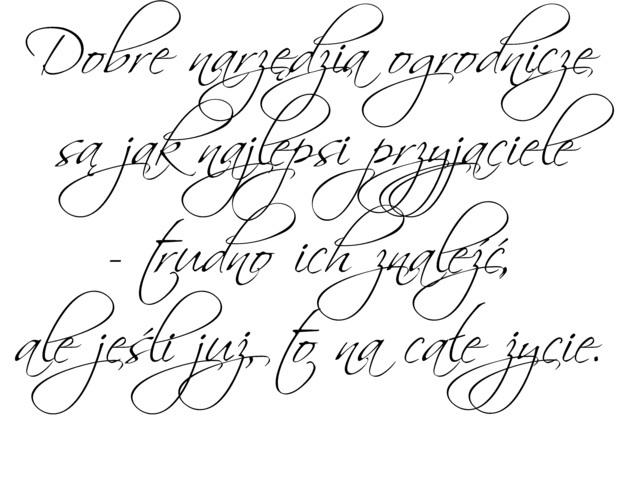 Dobre narzędzia ogrodnicze
są jak najlepsi przyjaciele
- trudno ich znaleźć,
ale jeśli już, to na całe życie.